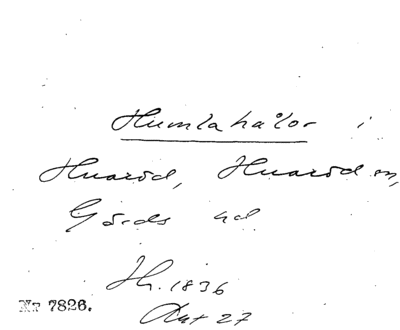 Humlahålor i
Huaröd, Huaröd sn,
Gärds hd
Ih. 1836
Akt 27
Nr 7826.